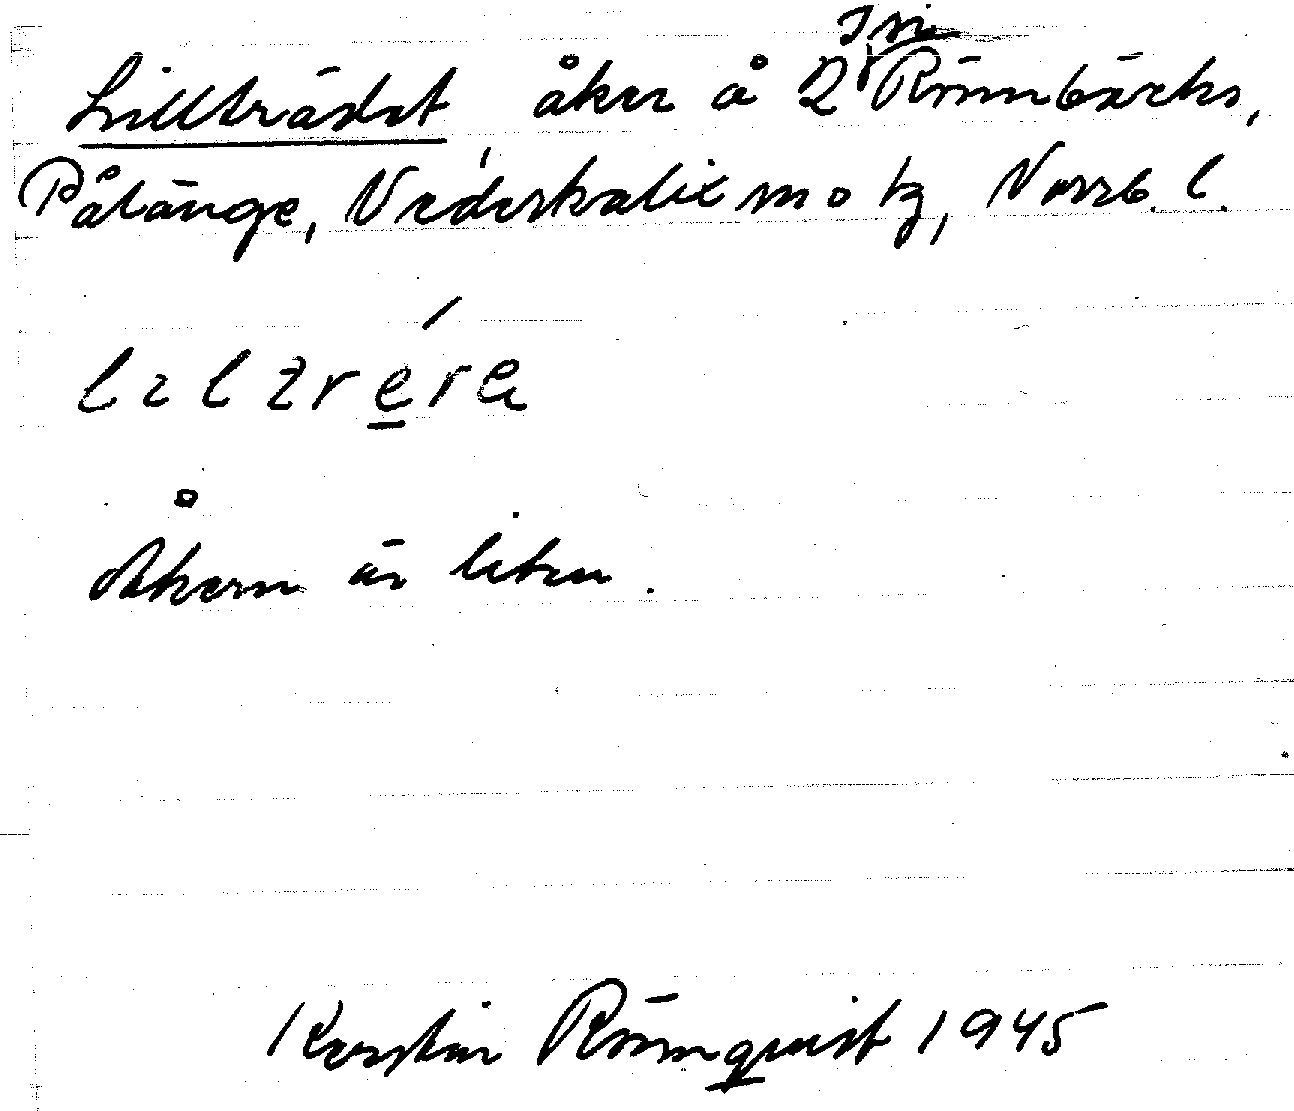 Lillträdet, åker å 2 Rönnbäcks,
Pålänge, Nederkalix sn o tg, Norrb. l.
Åkern är liten.
Kerstin Rönnqvist 1945